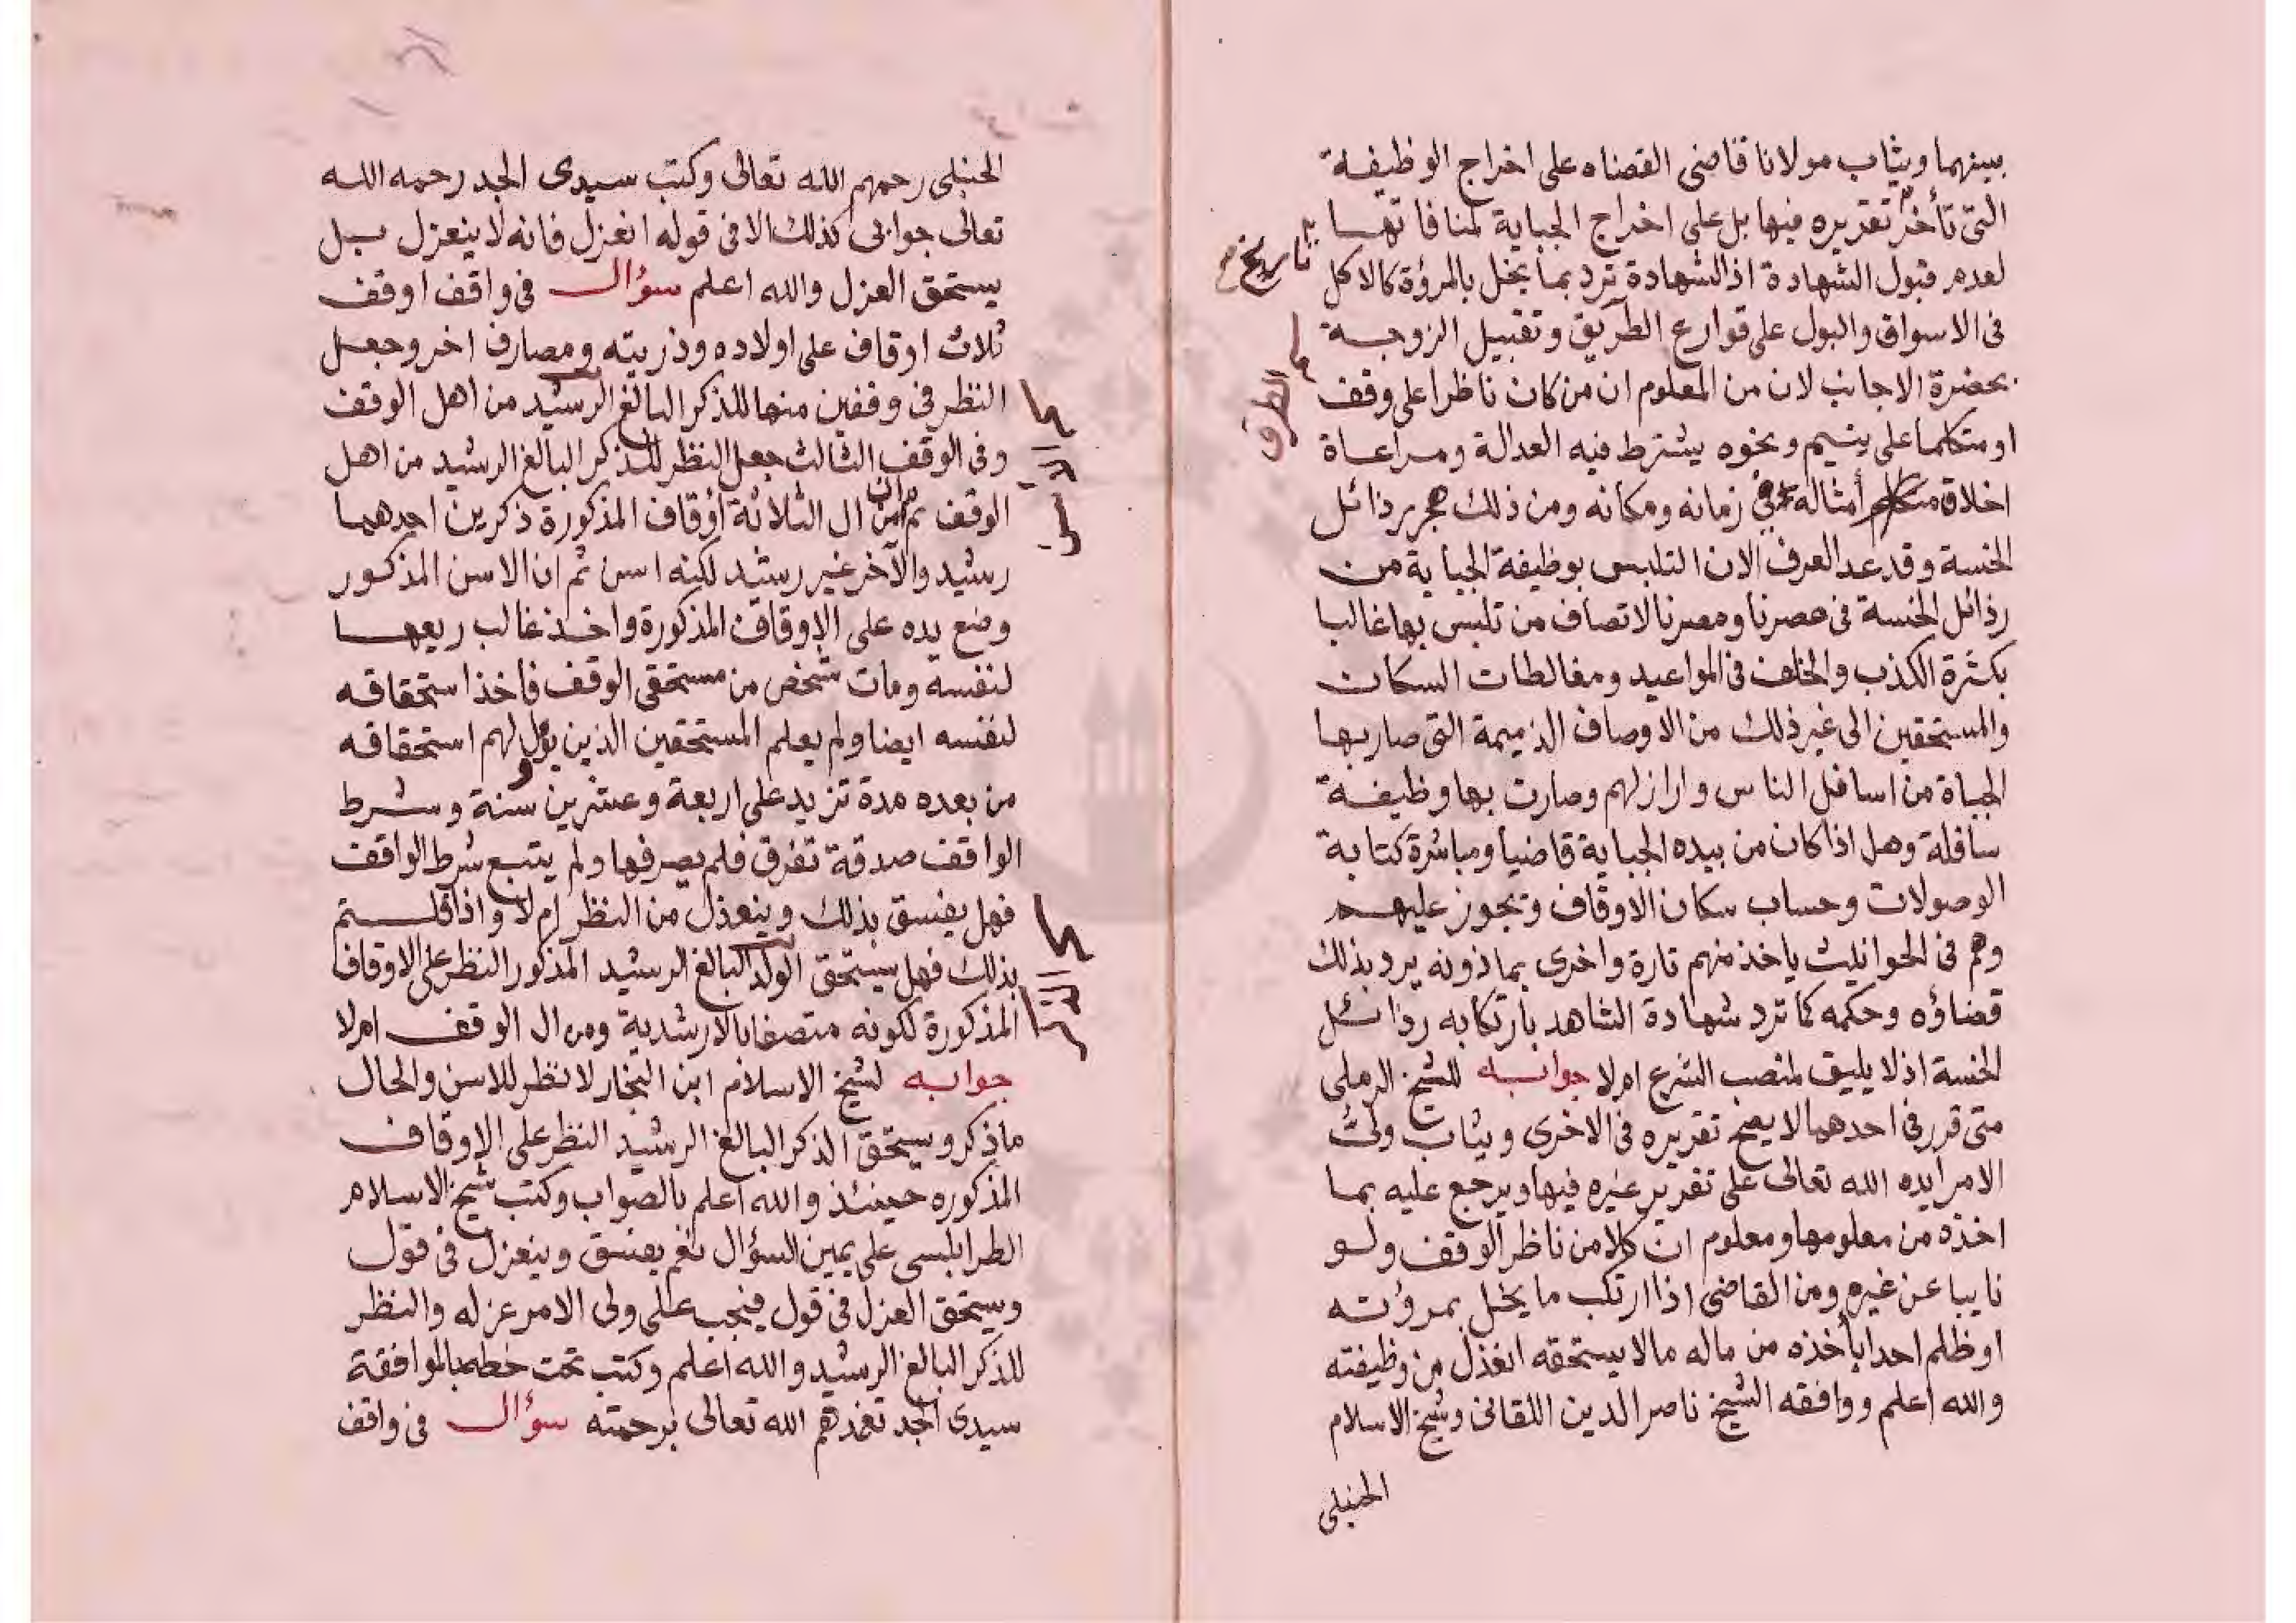 بينهما ويثاب مولانا قاضى القضاه على اخراج الوظيفة
التى تأخر تقريره فيها بل على اخراج الجباية لمنافاتها
تاريخ
لعدم قبول الشهادة اذ الشهادة ترد بما يخل بالمرؤة كالاكل
فى الاسواق والبول على قوارع الطريق وتقبيل الزوجة
الطرق
بحضرة الاجانب لان من المعلوم ان من كان ناظرا على وقف
او متكلما على يتيم ونحوه يشترط فيه العدالة ومراعاة
اخلاق أمثاله فى زمانه ومكانه ومن ذلك هجر رذائل
الخسة وقد عد العرف الان التلبس بوظيفة الجباية من
رذائل الخسة فى عصرنا ومصرنا لاتصاف من تلبس بها غالبا
بكثرة الكذب والخلف فى المواعيد ومغالطات السكان
والمستحقين الى غير ذلك من الاوصاف الذميمة التى صار بها
الجباة من اسافل الناس وارازلهم وصارت بها وظيفة
سافلة وهل اذا كان من بيده الجباية قاضيا ومباشرة كتابة
الوصولات وحساب سكان الاوقاف وتجوز عليهم
وهم فى الحوانيت ياخذ منهم تارة واخرى بماذونه يرد بذلك
قضاؤه وحكمه كما ترد شهادة الشاهد بارتكابه رذائل
الخسة اذ لا يليق لمنصب الشرع ام لا جوابه للشيخ الرملى
متى قرر فى احدهما لا يصح تقريره فى الاخرى ويثاب ولى
الامر ايده الله تعالى على تقرير غيره فيها ويرجع عليه بما
اخذه من معلومها ومعلوم ان كلا من ناظر الوقف ولو
نايبا عن غيره ومن القاضى اذا ارتكب ما يخل بمروءته
او ظلم احدا بأخذه من ماله مالا يستحقه انعذل من وظيفته
والله اعلم ووافقه الشيخ ناصر الدين اللقانى وشيخ الاسلام
الحنبلى
الحنبلى رحمهم الله تعالى وكتب سيدى الجد رحمه الله
تعالى جوابى كذلك الا فى قوله انعزل فانه لا ينعزل بل
يستحق العزل والله اعلم سؤال فى واقف اوقف
ثلاث اوقاف على اولاده وذريته ومصارف اخر وجعل
النظر فى وقفين منها للذكر البالغ الرشيد من اهل الوقف
وفى الوقف الثالث جعل النظر للذكر البالغ الرشيد من اهل
الوقف ثم ان من ال الثلاثة أوقاف المذكورة ذكرين احدهما
رشيد والآخر غير رشيد لكنه اسن ثم ان الاسن المذكور
وضع يده على الاوقاف المذكورة واخذ غالب ريعها
لنفسه ومات شخص من مستحقى الوقف فاخذ استحقاقه
لنفسه ايضا ولم يعلم المستحقين الذين يؤل لهم استحقاقه
من بعده مدة تزيد على اربعة وعشرين سنة وشرط
الواقف صدقة تفرق فلم يصرفها ولم يتبع شرط الواقف
فهل يفسق بذلك وينعذل من النظر ام لا واذا قلتم
بذلك فهل يستحق الولد البالغ الرشيد المذكور النظر على الاوقاف
المذكورة لكونه متصفا بالارشدية ومن ال الوقف ام لا
جوابه لشيخ الاسلام ابن النجار لا نظر للاسن والحال
ماذكر ويستحق الذكر البالغ الرشيد النظر على الاوقاف
المذكوره حينئذ والله اعلم بالصواب وكتب شيخ الاسلام
الطرابلسى على يمين السؤال نعم يفسق وينعزل فى قول
ويستحق العزل فى قول فيجب على ولى الامر عزله والنظر
للذكر البالغ الرشيد والله اعلم وكتب تحت خطهم بالموافقة
سيدى الجد تغمدهم الله تعالى برحمته سؤال فى واقف